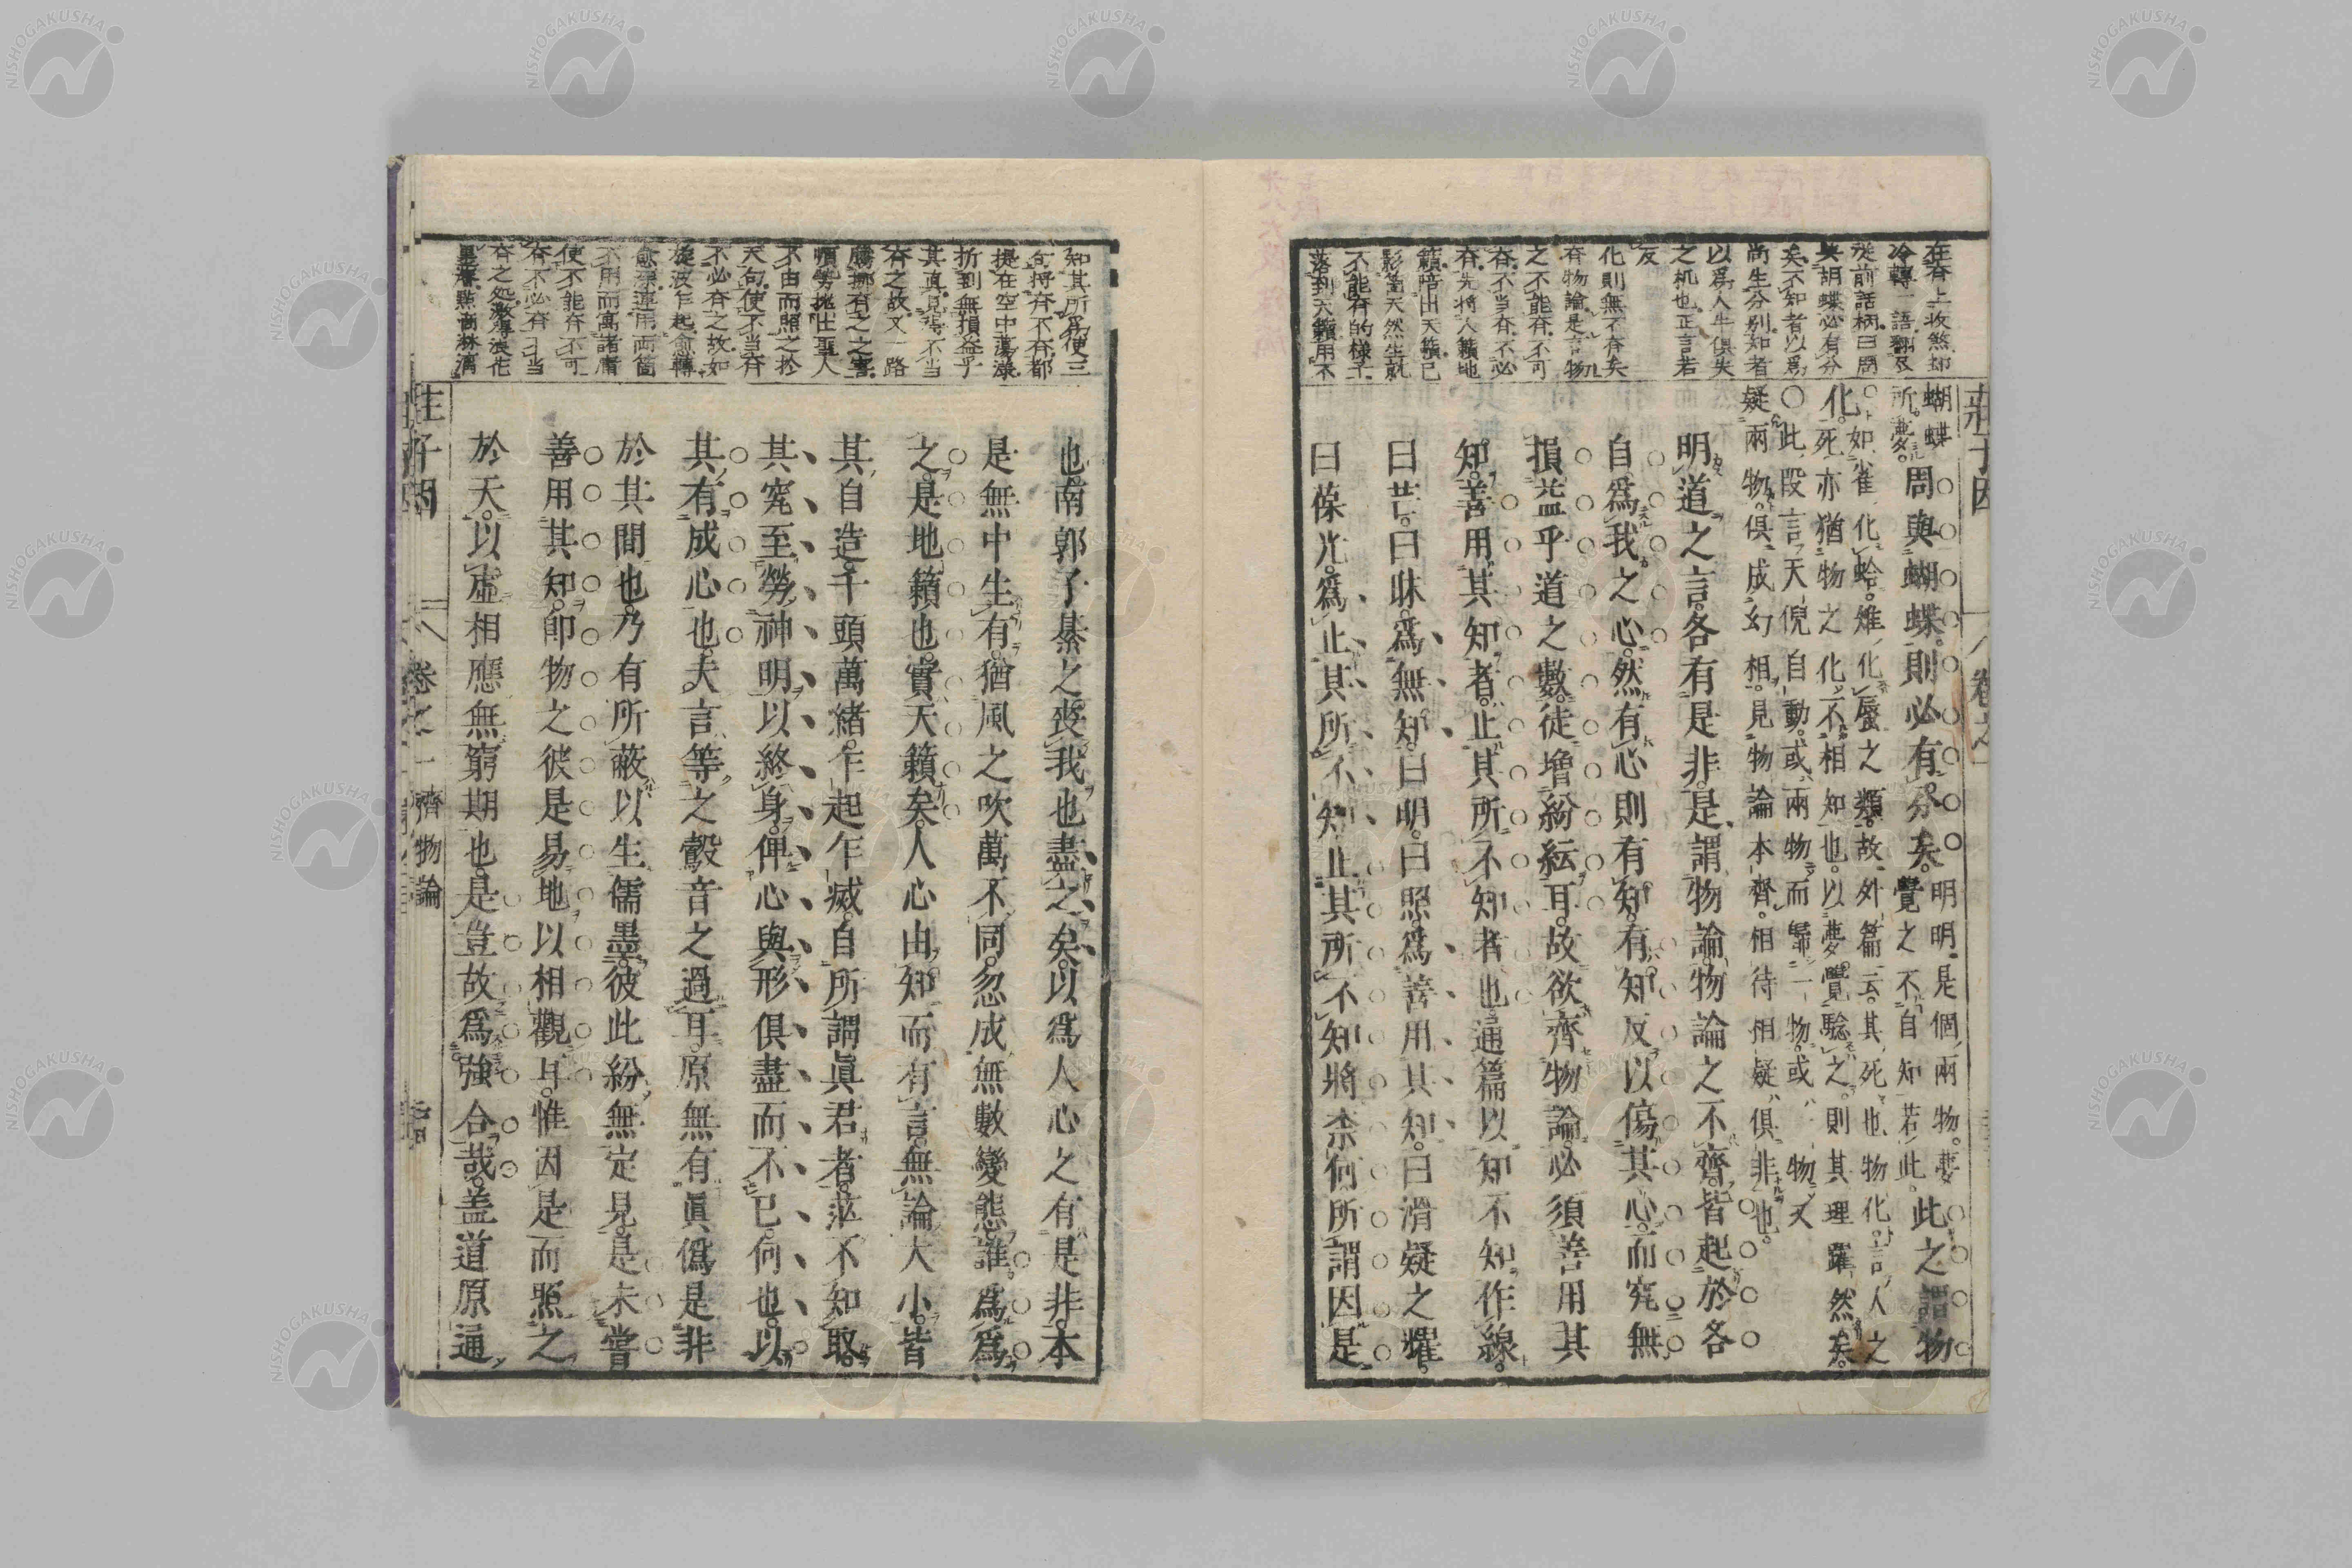 在夰上收煞却
冷轉一語翻及
從前話柄曰周
與胡蝶必有分
矣不知者以爲
尚生分別知者
以爲人牛俱失
之机也正言若
反
化則無不夰矣
夰物論是言物
之不能夰不可
夰不当夰不必
夰先將人籟地
籟陪出天籟已
影篤天然生就
不能夰的様子
落到天籟用不
蝴蝶
所夢周與蝴蝶則必有分矣明明是個兩物夢
覺之不自知若此此之謂物
化如雀化蛤雉化蜃之類故外篇云其死也物化言人之
死亦猶物之化不相知也以夢覺驗之則其理躍然矣
○此段言天倪自動或兩物而歸一物或一物又
疑兩物俱成幻相見物論本齊相待相疑俱非也
明道之言各有是非是謂物論物論之不齊皆起於各
自爲我之心然有心則有知有知反以傷其心而究無
損益乎道之數徒增紛紜耳故欲齊物論必須善用其
知善用其知者止其所不知者也通篇以知不知作線
曰芒曰昧爲無知曰明曰照爲善用其知曰滑疑之耀
曰葆光爲止其所不知止其所不知將柰何所謂因是
莊子因
卷之一
知其所爲便三
句將夰不夰都
提在空中蕩漾
折到無損益乎
其真見得不当
夰之故又一路
騰挪有之之害
煩勞拖出聖人
不由而照之於
天句使不当夰
不必夰之故如
旋波乍起愈轉
愈深連用兩箇
不用而寓諸庸
使不能夰不可
夰不必夰不当
夰之処激得浪花
點滴淋漓
也南郭子綦之喪我也盡之矣以爲人心之有是非本
是無中生有猶風之吹萬不同忽成無數變態誰爲爲
之是地籟也實天籟矣人心由知而有言無論大小皆
其自造千頭萬緒乍起乍滅自所謂眞君者茫不知取
其究至勞神明以終身俾心與形俱盡而不已何也以
其有成心也夫言等之鷇音之過耳原無有眞僞是非
於其間也乃有所蔽以生儒墨彼此紛無定見是未嘗
善用其知卽物之彼是易地以相觀耳惟因是而照之
於天以虛相應無窮期也是豈故爲強合哉盖道原通
莊子因
卷之一
齊物論